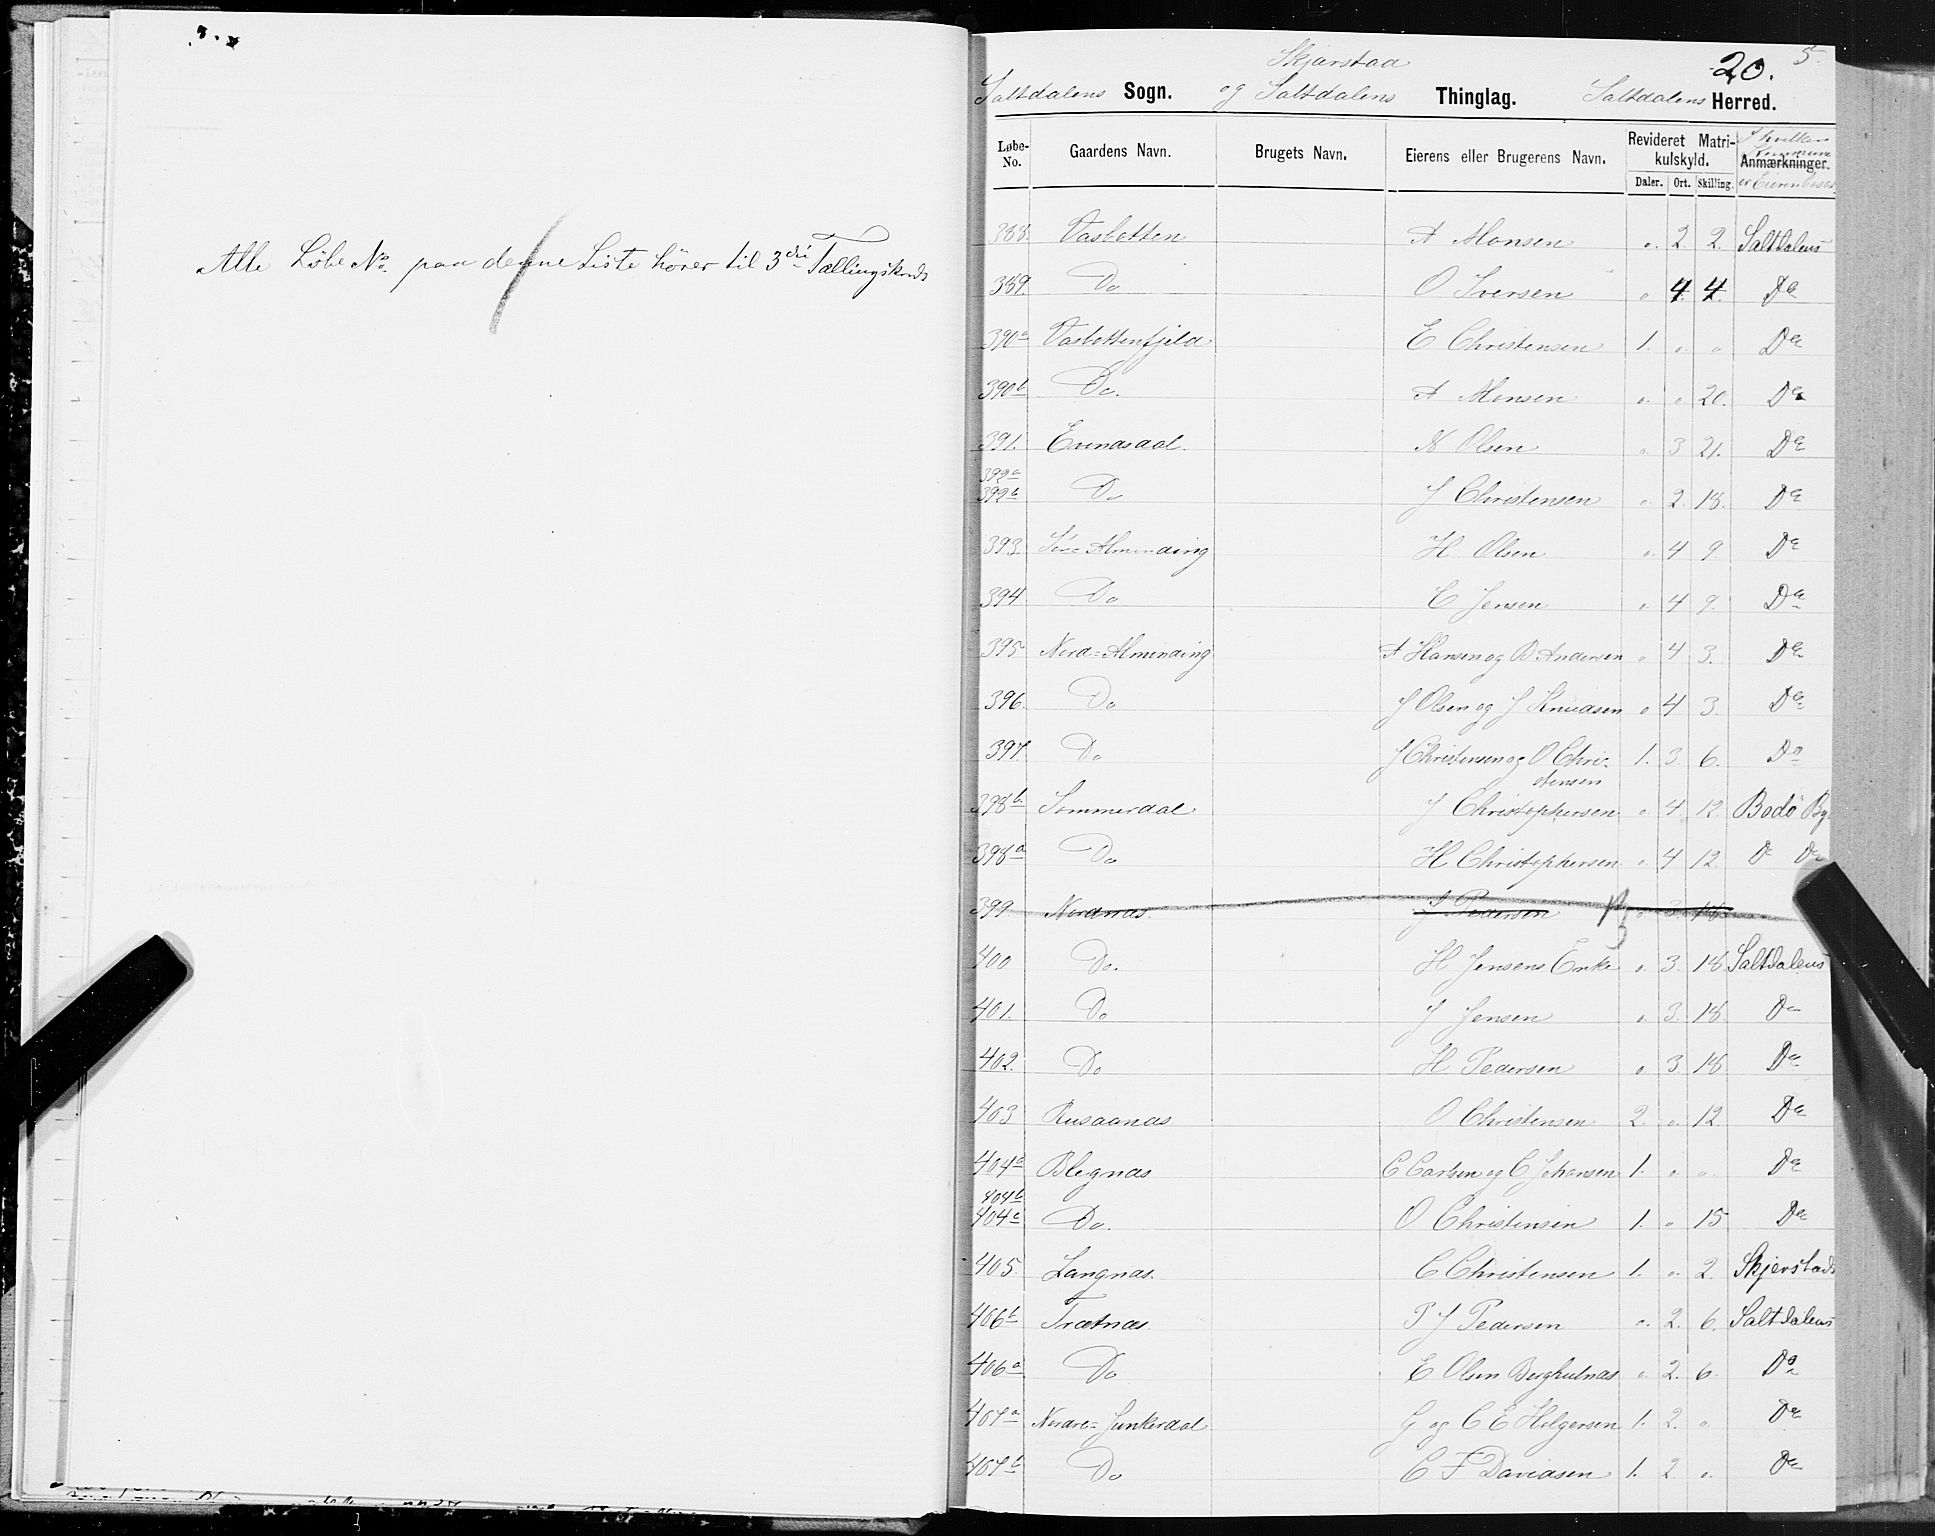 Alle Löbe No. paa denne Liste hører til 3die Tællingskreds
20. 5
Skjerstad
Saltdalens Sogn. og Saltdalens Thinglag. Saltdalens Herred.
Løbe-No. Gaardens Navn. Brugets Navn. Eierens eller Brugerens Navn. Revideret Matrikulskyld. Daler. Ort. Skilling. I hvilken Kommune Anmærkninger. er Eieren bosat
388. Vasbotten A Monsen " 2. 2. Saltdalens
389. Do O Iversen " 4. 4. Do
390a Vasbottenfjeld E Christensen 1. " " Do
390b Do. A Monsen " " 20. Do
391. Evensdal. N Olsen " 3 21. Do
392a
392b Do J Christensen " 2. 18. Do
393. Sör-Alminding H. Olsen " 4 9 Do
394 Do C Jensen " 4 9. Do
395 Nord-Alminding A Hansen og B Andersen " 4 3. Do
396. Do J Olsen og J Knudsen " 4 3. Do
397. Do J Christensen og O Chri-
stensen 1. 3. 6. Do
398b. Sommerdal J Christophersen " 4. 12. Bodö By
398a Do H Christophersen " 4 12. Do Do
399 Nordnæs. J Pedersen " 3. 18.
400 Do. H Jensens Enke " 3. 18. Saltdalens
401. Do J Jensen " 3. 18. Do
402. Do H Pedersen " 3. 18 Do
403 Rusaanæs O Christensen 2. " 12. Do
404a Blegnæs C Carlsen og C Johansen 1. " " Do
404b
404c Do. O Christensen 1. " 15 Do
405. Langnæs. C Christensen 1. " 2. Skjerstads
406b Trætnæs P J Pedersen " 2. 6. Saltdalens
406a Do E Olsen Berghulnæs " 2. 6. Do
407a Nordre-Junkerdal G og C E Holgersen 1. 2. " Do
407b Do C F Davidsen 1. 2. " Do